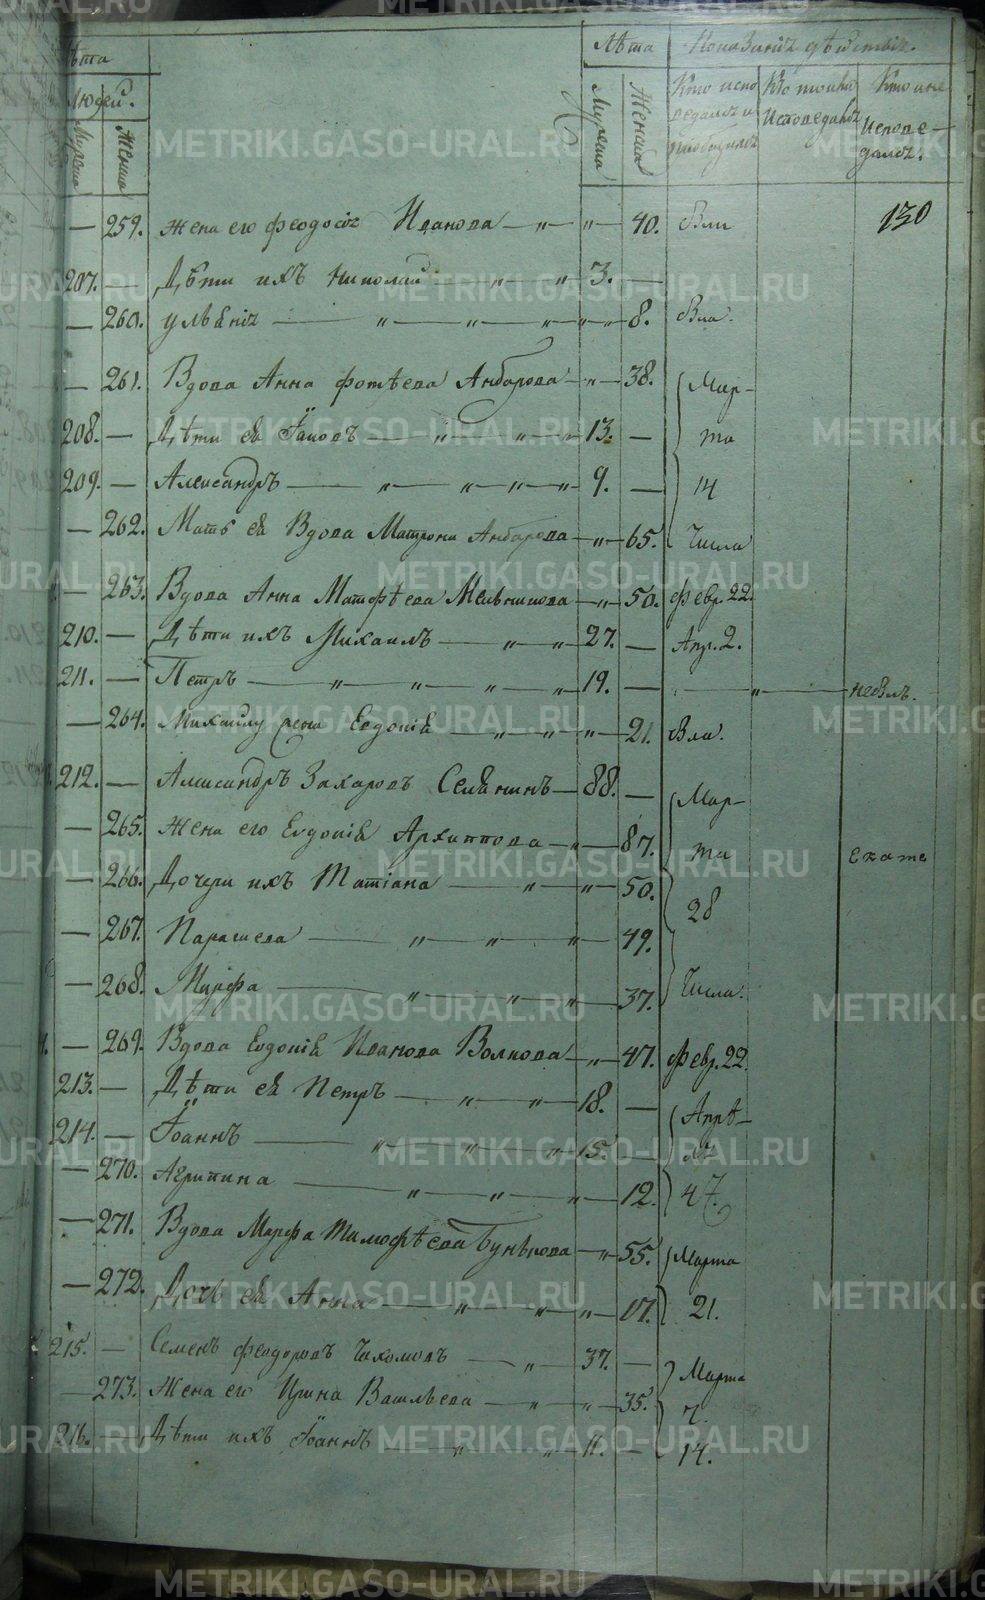 Лѣта Показаніе дѣйствія.
Людей. Мужска Женска Мужска Женска Кто испо Кто токмо Кто и не
ведался и Исповедался Исповѣ-
дался.
130
— 259. Жена его Феодосія Иванова — „ — „ — 40. Вли
207. — Дѣти ихъ Николай — „ „ 3. —
— 260. Ульянія — „ — „ — „ — „ — 8. Вла.
— 261. Вдова Анна Фотѣева Анбарова — „ — 38. Мар-
208. — Дѣти ея Іаковъ — „ „ „ 13. — та
209. — Александръ — „ — „ — „ — „ — 9. — 14
— 262. Мать ея Вдова Матрона Анбарова — „ — 65. Числа
— 263. Вдова Анна Матфѣева Мельникова — „ — 50. Февр. 22.
210. — Дѣти ихъ Михаилъ — „ — „ — 27. — Апр. 2.
211. — Петръ — „ — „ — „ — „ — 19. — „ — „ —
— 264. Михаилу жена Евдокія — „ — „ — „ — 21. Вла.
212. — Александръ Захаровъ — 88. — Мар-
— 265. Жена его Евдокія Архиппова — „ — 87. та
— 266. Дочери ихъ Татіана — „ — „ — 50. 28
— 267. Параскева — „ — „ — „ — 49.
— 268. Марфа — „ — „ — „ — 37. Числа.
— 269. Вдова Евдокія Иванова Волкова — „ — 47. Февр. 22.
213. — Дѣти ея Петръ — „ — „ — 18. — Апрѣ-
214. — Іоаннъ — „ — „ — „ — 15. — ля
— 270. Агрипина — „ — „ — „ — 12. 4
— 271. Вдова Марфа Тимофѣева Бунькова — „ — 55. Марта
— 272. Дочь ея Анна — „ — „ — „ — 17. 21.
215. — Семенъ Феодоровъ — „ — 37. — Марта
— 273. Жена его Ирина Васильева — „ — „ — 35. Ч.
216. — Дѣти ихъ Іоаннъ — „ — „ 11. — 14.
METRIKI.GASO-URAL.RU